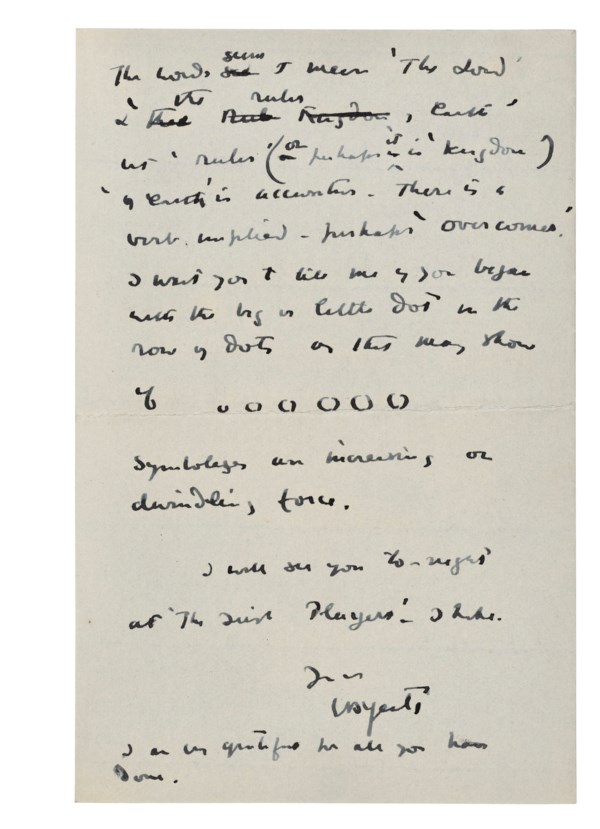 The words seem to mean 'The Lord'
& the rules Kingdom, earth'
'rules' (or perhaps it is 'kingdom')
'of earth' is accusative. There is a
verb implied - perhaps 'overcomes'.
I want you to tell me if you began
with the big or little dot in the
row of dots as this may show
if o o o O O O
symbolizes an increasing or
dwindling force.
I will see you to-night
at 'The Irish Players' - I
WBYeats
I am very grateful for all you have
done.